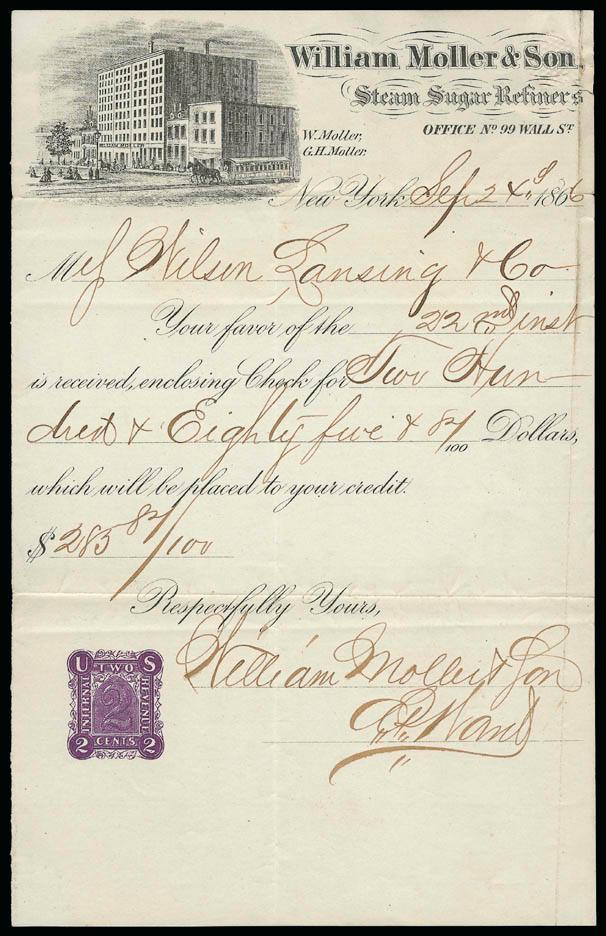 William Moller & Son,
Steam Sugar Refiners
OFFICE No 99 WALL ST.
W. Moller,
G.H. Moller.
New York Sep 24th 1866
Wilson Lansing & Co
Your favor of the 22nd inst
is received, enclosing Check for Two Hun-
dred & Eighty five & 82/100 Dollars,
which will be placed to your credit.
$285 82/100
Respectfully Yours,
William Moller & Son
Ward
U TWO S
INTERNAL 2 REVENUE
2 CENTS 2